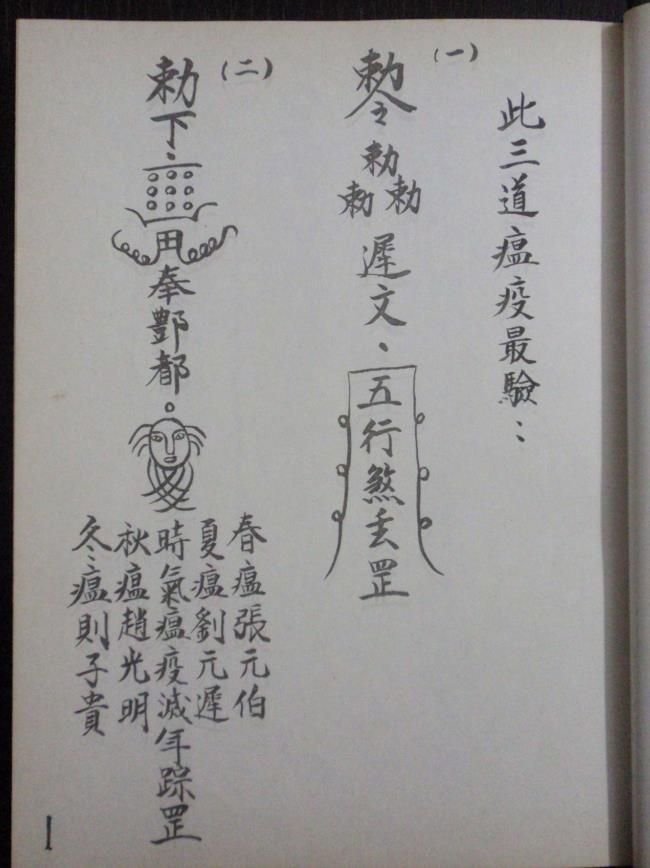 此三道瘟疫最驗：
（一）
勅令
勅
勅勅
遲文、
五行煞
罡
（二）
勅下
田
奉酆都
春瘟張元伯
夏瘟劉元遲
時氣瘟疫滅年踪罡
秋瘟趙光明
冬瘟則子貴
1